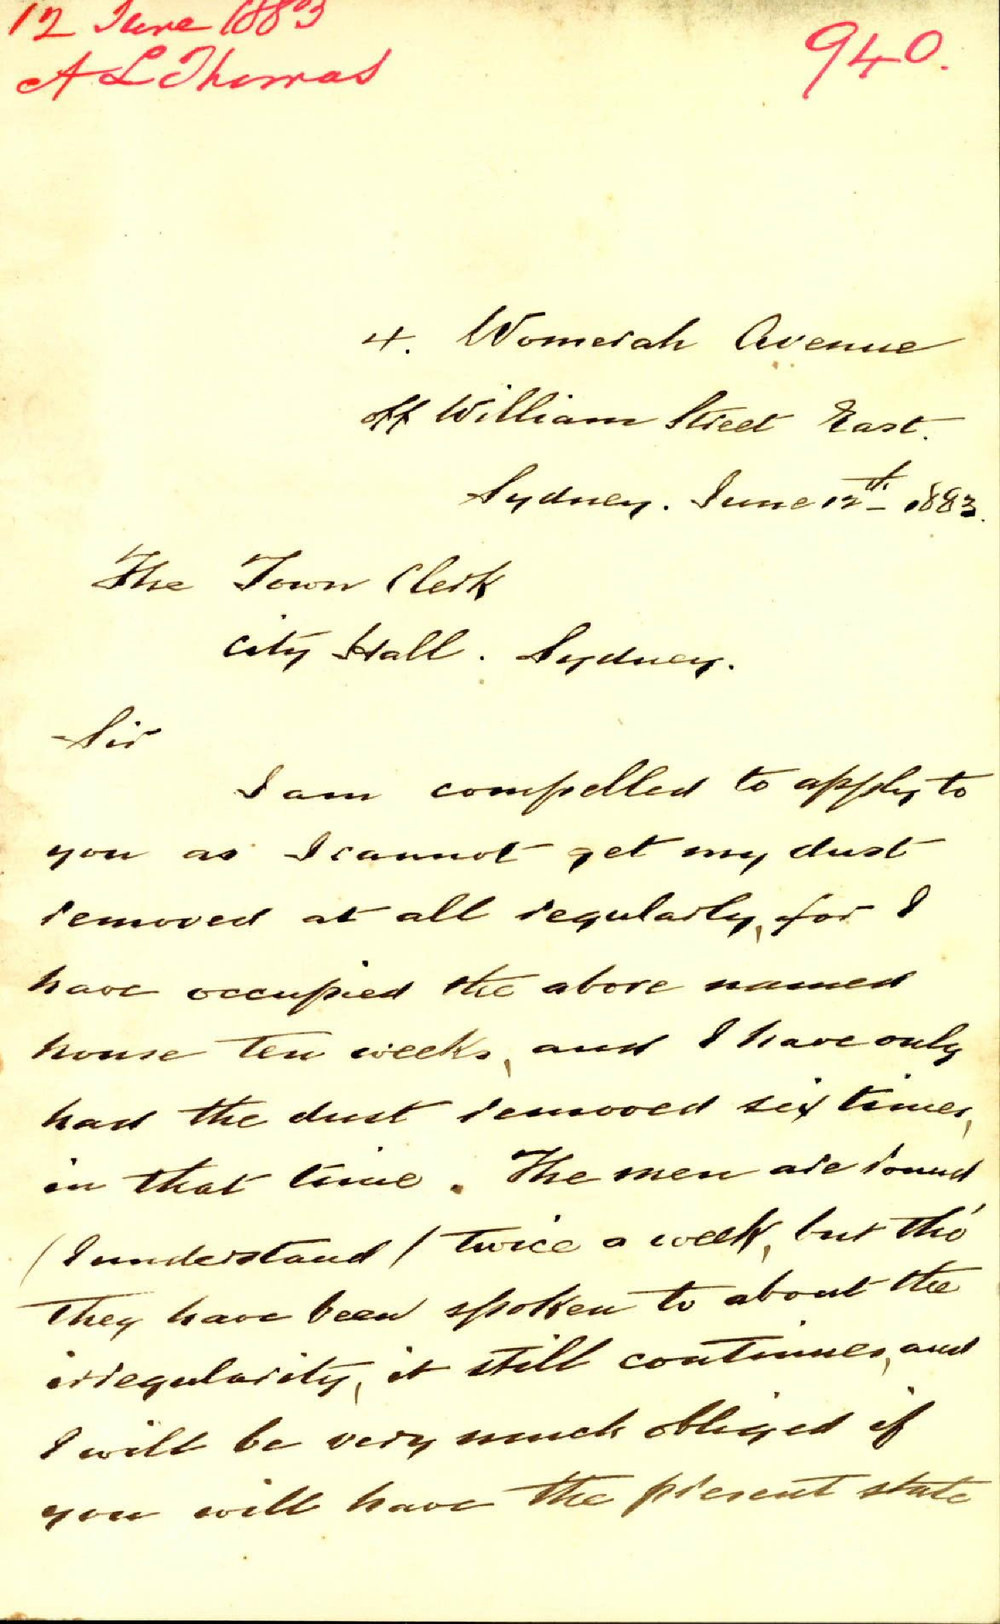 12 June 1883
A L Thomas
940.
4. Womerah Avenue
off William Street East.
Sydney. June 12th 1883.
The Town Clerk
City Hall. Sydney.
Sir
I am compelled to apply to
you as I cannot get my dust
removed at all regularly, for I
have occupied the above named
house ten weeks, and I have only
had the dust removed six times,
in that time. The men are round
(I understand) twice a week, but tho'
they have been spoken to about the
irregularity, it still continues, and
I will be very much obliged if
you will have the present state